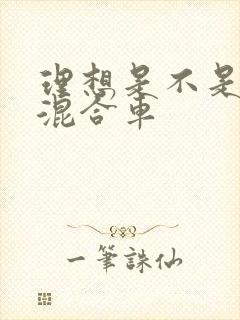 理想是不是
混合车
一筆誅仙